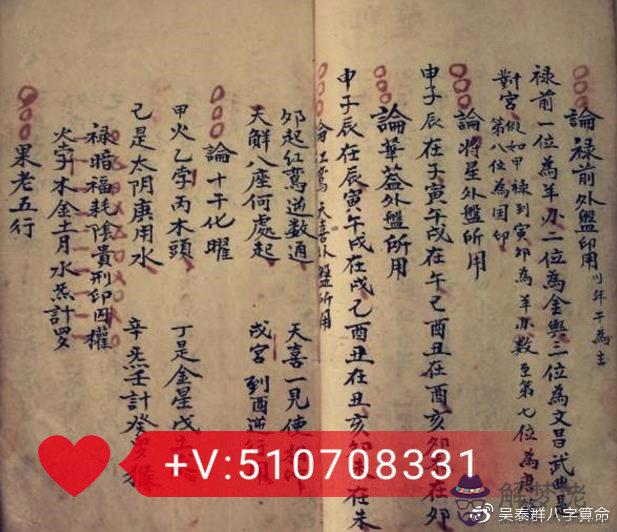 論禄前外盤印用 以年干為主
禄前一位為羊刃二位為金輿三位為文昌武曲
對宮假如甲禄到寅卯為羊刃數至第七位為
第八位為国印
論将星外盤所用
申子辰在子寅午戌在午巳酉丑在酉亥卯未在卯
論華蓋外盤所用
申子辰在辰寅午戌在戌巳酉丑在丑亥卯未在未
論紅鸞天喜外盤所用
卯起紅鸞逆数通 天喜一見使
天解八座何處起 戌宮到酉逆行
論十干化曜
甲火乙孛丙木頭 丁是金星戊
己是太阴庚用水 辛炁壬計癸羅猴
禄暗福耗陰貴刑印囚權
火孛木金土月水炁計羅
果老五行
+V:510708331
解夢佬
吴泰群八字算命